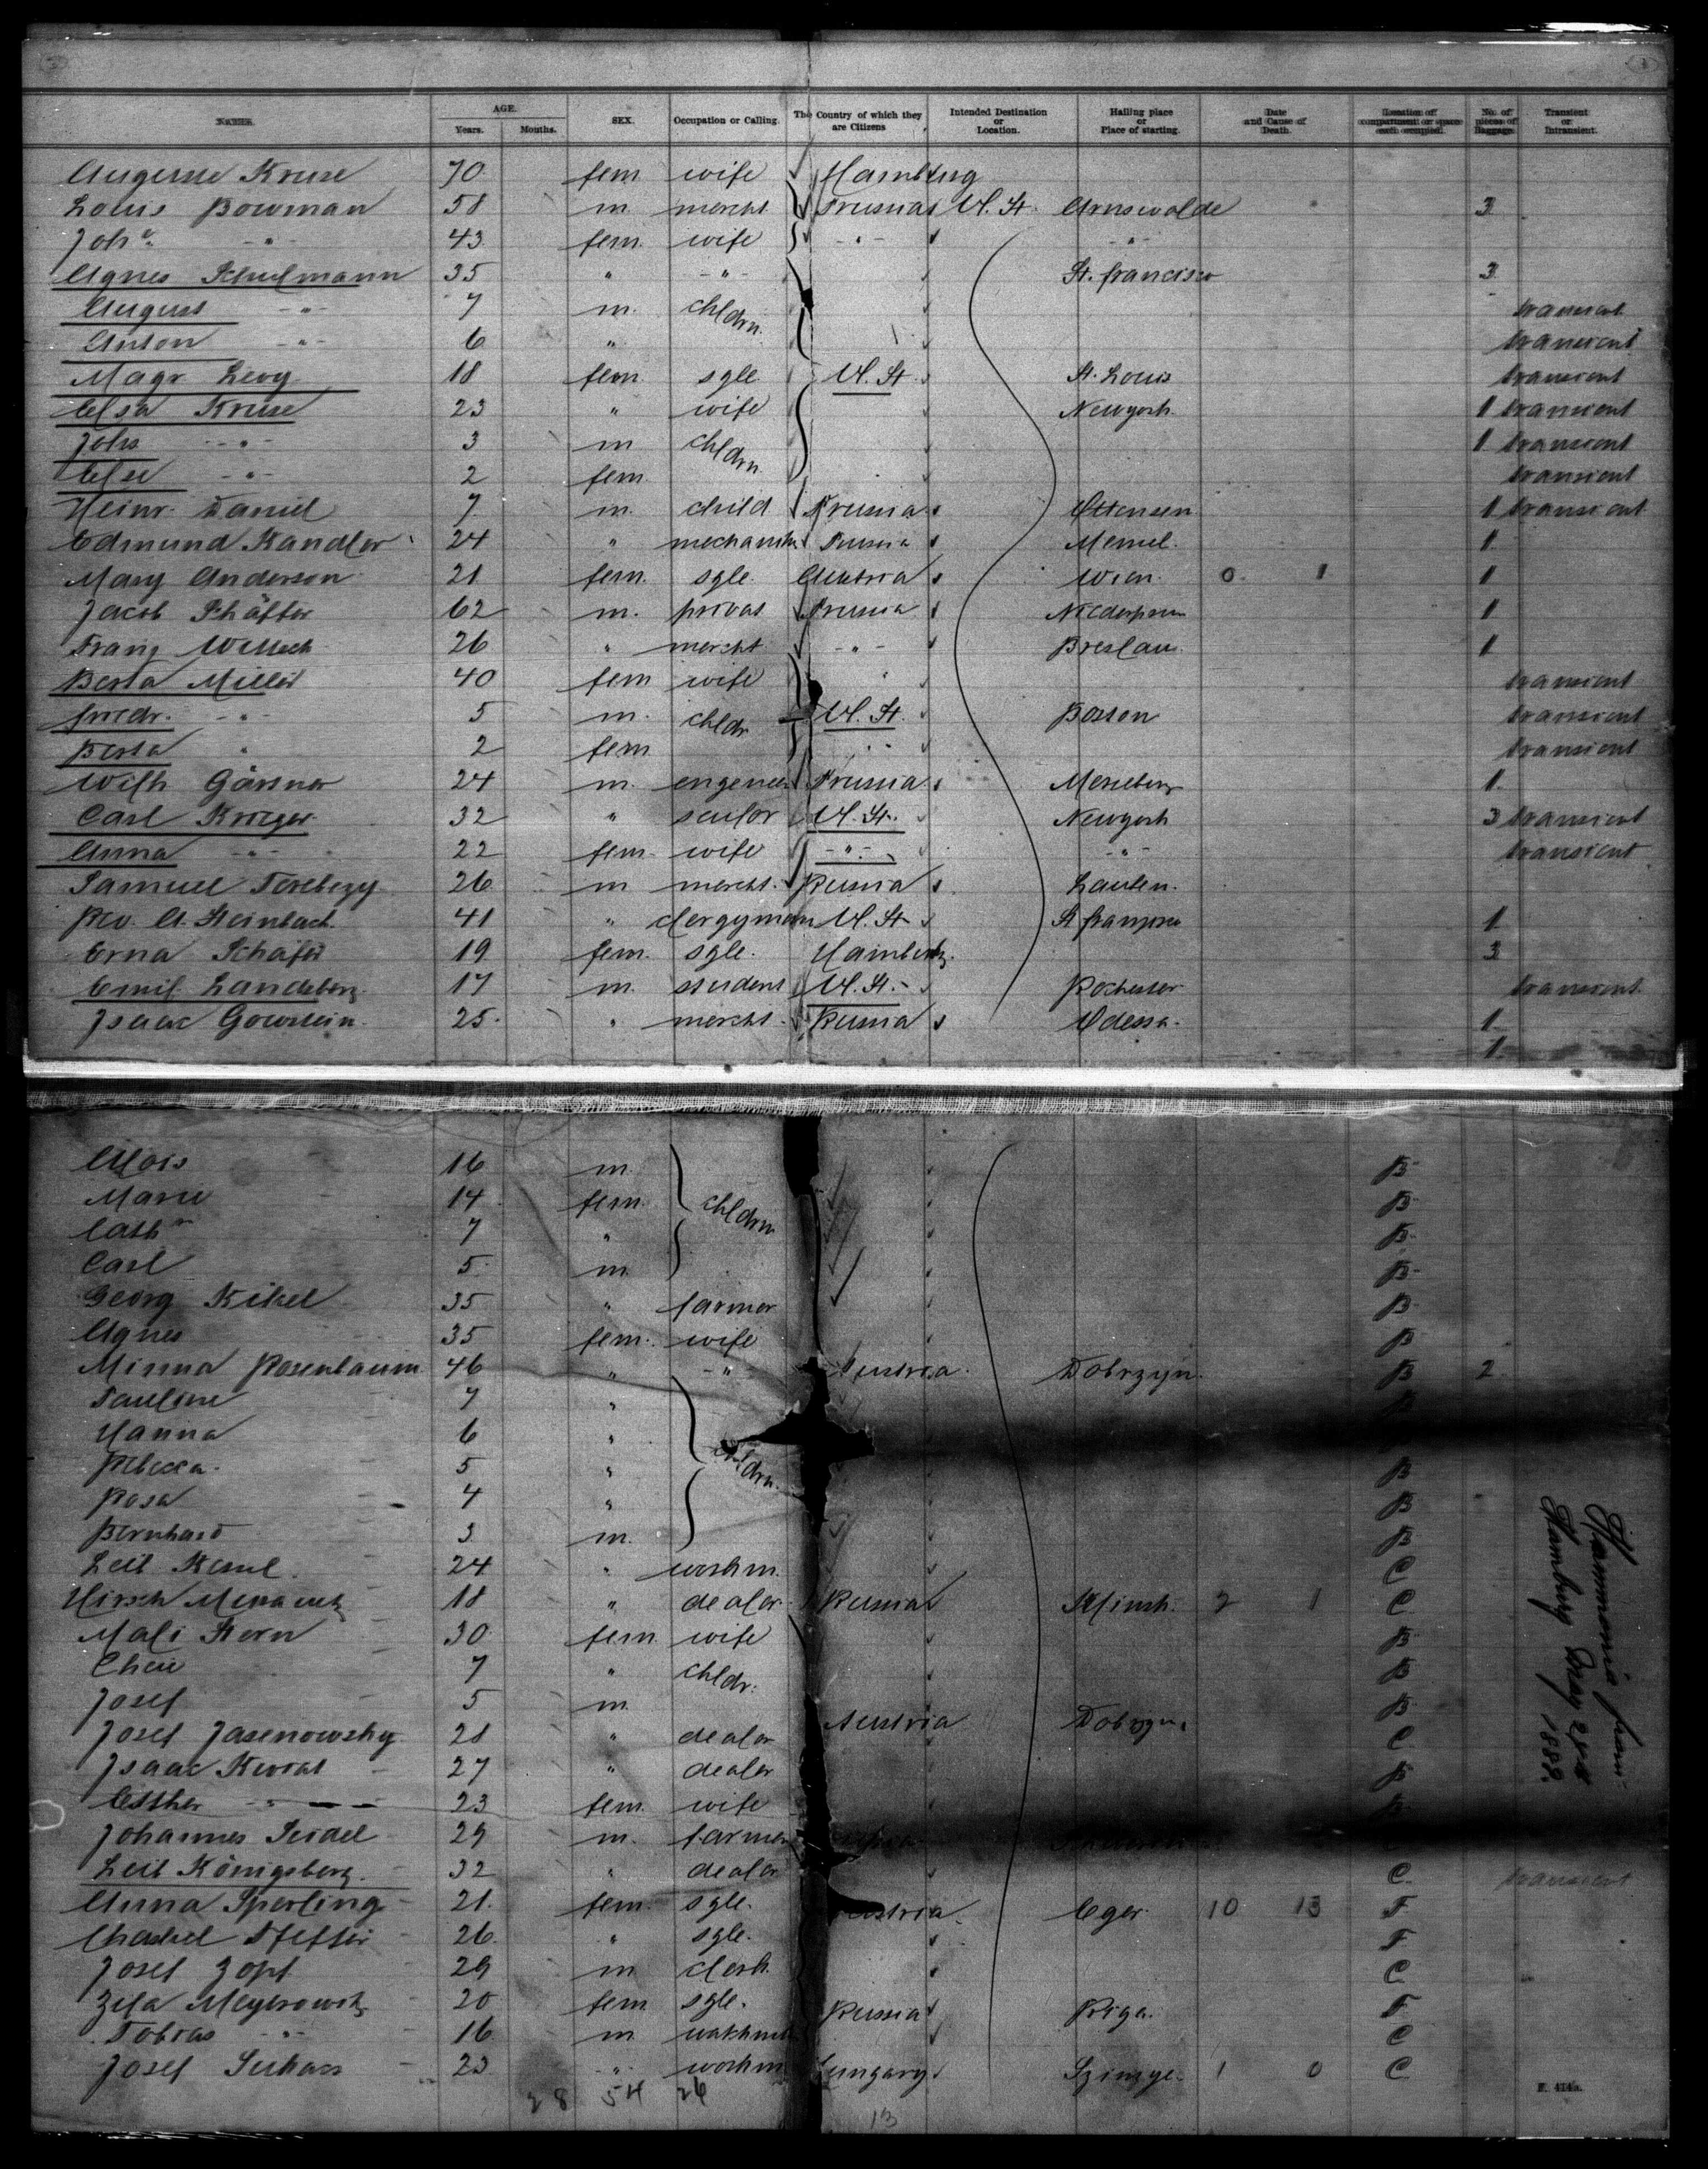 NAMES. AGE. Years. Months. SEX. Occupation or Calling. The Country of which they are Citizens Intended Destination or Location. Hailing place or Place of starting. Date and Cause of Death. Location of compartment or space each occupied. No. of pieces of Baggage. Transient or Intransient.
Auguste Kruse 70 fem wife Hamburg
Louis Bowman 58 m mercht Prussia U. St. Arnswalde 3
Joh 43 fem. wife -"- -"-
Agnes 35 " -"- St. francisco 3
August -"- 7 m. chldrn. transient
Anton -"- 6 " transient
Magr Levy 18 fem. sgle. U. St. St. Louis transient
Elsa Kruse 23 " wife Newyork 1 transient
Johs -"- 3 m chldrn 1 transient
Else -"- 2 fem transient
Heinr. Daniel 7 m. child Prussia Ottensen 1 transient
Edmund Kandler 24 " Prussia Memel. 1
Mary Anderson 21 fem. sgle. Austria Wien. 0 1 1
Jacob Schäffer 62 m. privat Prussia 1
Franz 26 " mercht -"- Breslau. 1
Berta Miller 40 fem wife " transient
friedr. -"- 5 m. chldr U. St. Boston transient
Berta " 2 fem " transient
Wilh Gärtner 24 m. engeneer Prussia Merseburg 1
Carl Krieger 32 " sculor U. St. Newyork 3 transient
Anna -"- 22 fem. wife -"- -"- transient
Samuel 26 m mercht. Russia Lauten.
Rev. A. Steinbach. 41 " clergyman U. St. 1
Erna Schäfer 19 fem. sgle. Hamburg. 3
Emil Landsberg. 17 m. student U. St. Rochester transient
Isaac 25. " mercht. Russia Odessa. 1
1
Alois 16 m. B
Marie 14 fem. chldrn B
Cath 7 " B
Carl 5 m. B
Georg 35 " farmer B
Agnes 35 fem. wife B
Minna Rosenbaum 46 " -"- Austria. Dobrzyn. B 2
Pauline 7 " B
Hanna 6 " chldrn.
Rebecca. 5 " B
Rosa 4 " B
Bernhard 3 m. B
Leib 24 " workm. C
Hirsch 18 " dealer Russia Minsk. 2 1 C
Mali Stern 30 fem wife B
7 " chldr. B
Josef 5 m. B
Josef Jasenowsky 28 " dealer Austria Dobrzyn. C
Isaac 27 " dealer B
Esther -"- 23 fem. wife B
Johannes Seidel 29 m. farmer
Leib Königsberg. 32 " dealer C. transient
Anna Sperling 21. fem. sgle. Austria. Eger. 10 13 F
Pfeffer 26 " sgle. F
Josef Zopf 29 m clerk. C
Meyerowitz 20 fem sgle. Russia Riga. F
Tobias -"- 16 m C
Josef 23 -"- workm Hungary. 1 0 C
28 54 26
13
Hammonia from
Hamburg May 1888.
F. 414a.